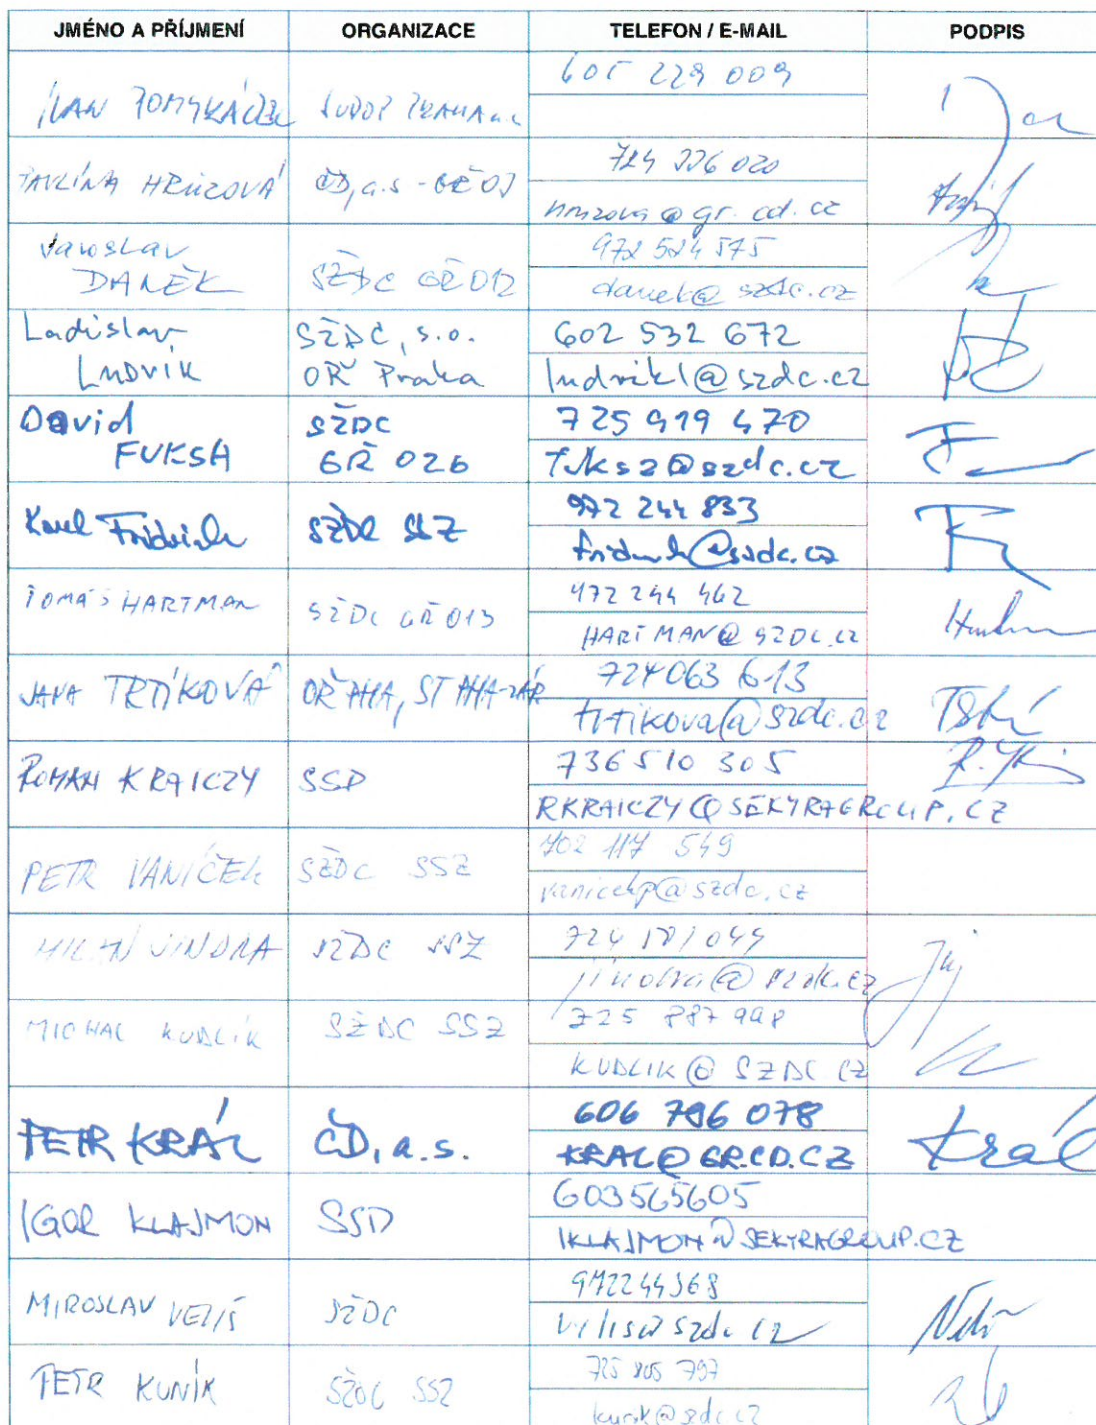 JMÉNO A PŘÍJMENÍ ORGANIZACE TELEFON / E-MAIL PODPIS
605 229 009
PRAHA a.s.
PAVLÍNA HRŮZOVÁ ČD, a.s - GŘ 07
724 026 020
hruzova@gr.cd.cz
Jaroslav
DANĚK SŽDC GŘ 012
972 524 575
danek@szdc.cz
Ladislav SŽDC, s.o. 602 532 672
LUDVÍK OŘ Praha ludvikl@szdc.cz
David SŽDC 725 919 470
FUKSA GŘ 026 fuksa@szdc.cz
Karel Fridrich SŽDC SSZ
972 244 833
fridrich@szdc.cz
TOMÁŠ HARTMAN SŽDC GŘ 013
972 244 462
HARTMAN@SZDC.CZ
JANA TRTÍKOVÁ OŘ PHA, ST PHA-ZÁP
724 063 613
trtikova@szdc.cz
ROMAN KRAICZY SSD
736 510 305
RKRAICZY@SEKYRAGROUP.CZ
PETR VANÍČEK SŽDC SSZ
702 117 549
vanicekp@szdc.cz
MILAN JINDRA SŽDC SSZ
724 181 044
jindra@szdc.cz
MICHAL KUDLÍK SŽDC SSZ
725 887 998
KUDLIK@SZDC CZ
PETR KRÁL ČD, a.s.
606 796 078
KRAL@GR.CD.CZ
Král
IGOR KLAJMON SSD
603565605
IKLAJMON@SEKYRAGROUP.CZ
MIROSLAV VELIŠ SŽDC
972244368
PETR KUNÍK SŽDC SSZ
725 805 797
kunik@szdc cz